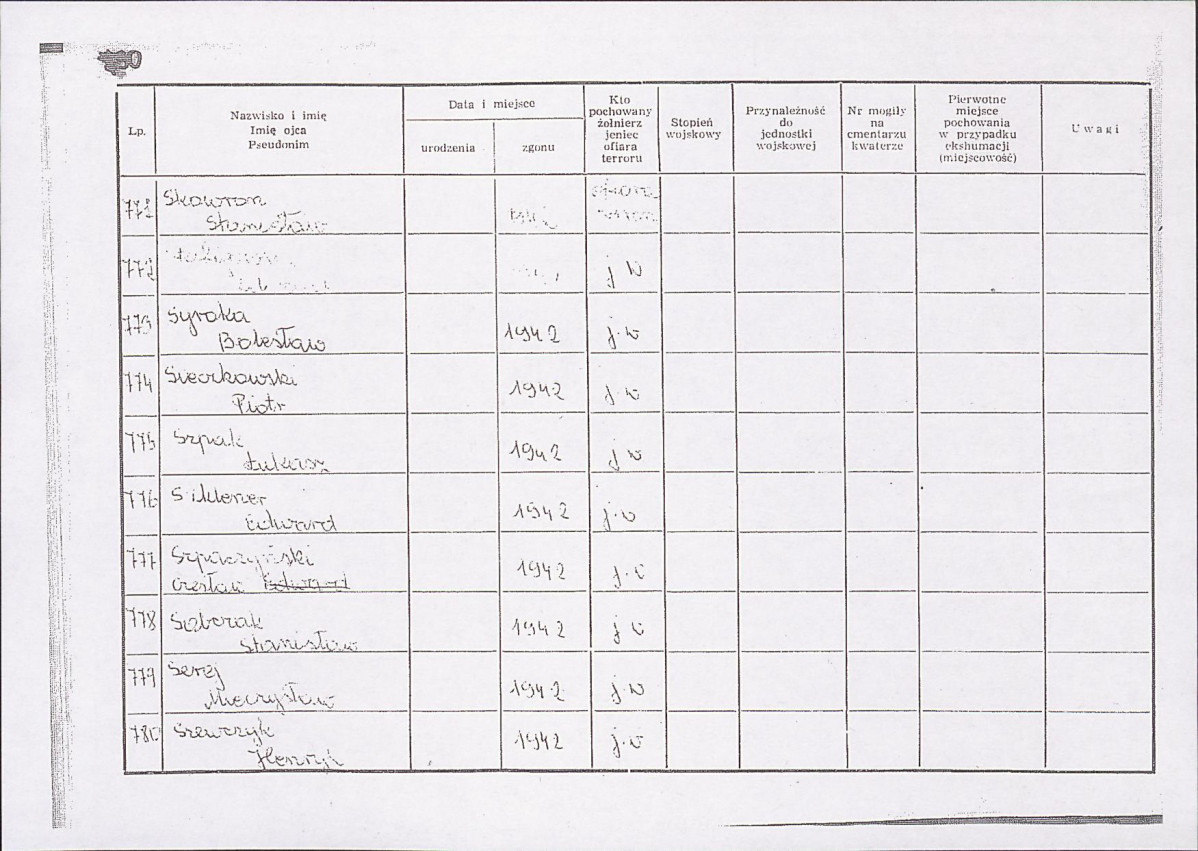 Lp.
Nazwisko i imię
Imię ojca
Pseudonim
Data i miejsce
urodzenia
zgonu
Kto
pochowany
żołnierz
jeniec
ofiara
terroru
Stopień
wojskowy
Przynależność
do
jednostki
wojskowej
Nr mogiły
na
cmentarzu
kwaterze
Pierwotne
miejsce
pochowania
w przypadku
ekshumacji
(miejscowość)
Uwagi
771 Skowron
Stanisław
772 j w
773 Syroka
Bolesław 1942 j.w
774 Sieczkowski
Piotr 1942 j w
775 Szpak
Łukasz 1942 j w
776
Edward 1942 j.w
777
Czesław Edward 1942 j.w
778
Stanisław 1942 j w
779 Serej
Mieczysław 1942 j.w
780 Szewczyk
Henryk 1942 j.w